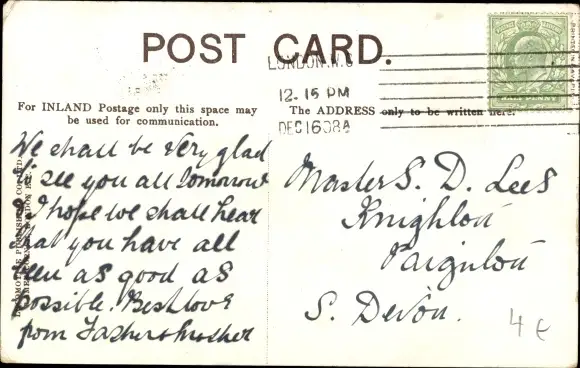 POST CARD.
LONDON. N.
12. 15 PM
DEC 16 08
HALF PENNY
For INLAND Postage only this space may
be used for communication.
The ADDRESS only to be written here.
We shall be very glad
to see you all tomorrow
& I hope we shall hear
that you have all
been as good as
possible. Best love
from Father & Mother
Master S. D. Lees
Knighton
Paignton
S. Devon.
4 E